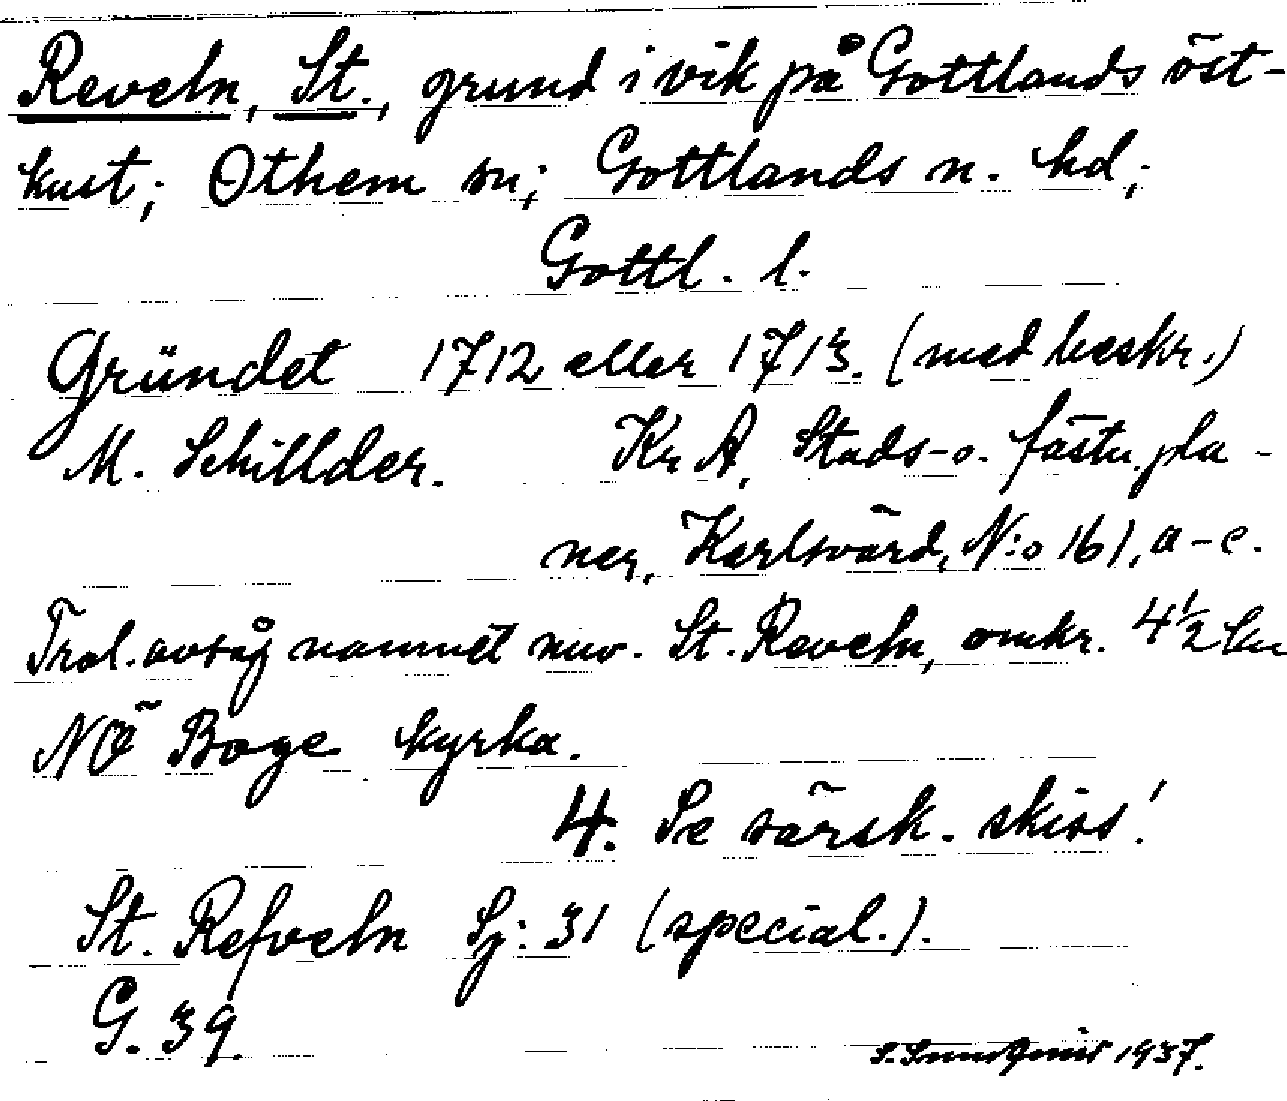 Reveln, St., grund i vik på Gottlands öst-
kust; Othem sn; Gottlands n. hd,;
Gottl. l.
Gründet 1712 eller 1713. (med beskr.)
M. Schillder. Kr A, Stads-o. fästn. pla-
ner, Karlsvärd, N:o 161, a-c.
Trol. avsåg namnet nuv. St. Reveln, omkr. 4½ km
NÖ Boge kyrka.
4. Se särsk. skiss!
St. Refveln Sj: 31 (special.).
G. 39.
1937.